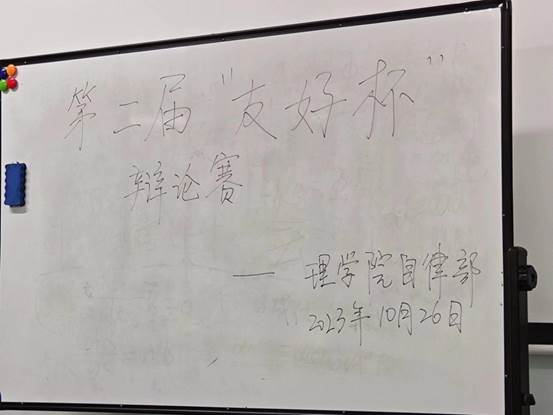 第二届“友好杯”
辩论赛
—— 理学院自律部
2023年10月26日